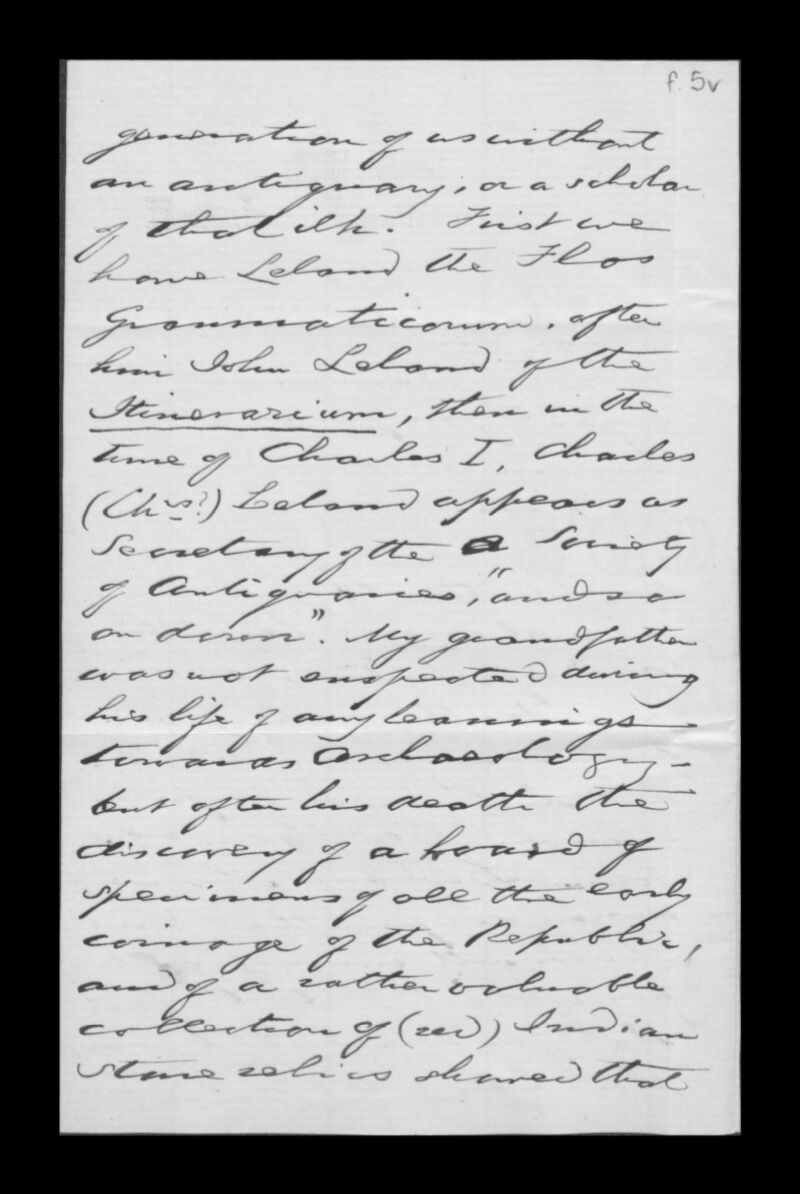 f. 5v
generation of us without
an antiquary, or a scholar
of that ilk. First we
have Leland the Flos
Grammaticorum. after
him John Leland of the
Itinerarium, then in the
time of Charles I, Charles
(Chs?) Leland appears as
Secretary of the a Society
of Antiquaries, "and so
on down". My grandfather
was not suspected during
his life of any leanings
towards Archaeology -
but after his death the
discovery of a hoard of
specimens of all the early
coinage of the Republic,
and of a rather valuable
collection of (red) Indian
stone relics showed that